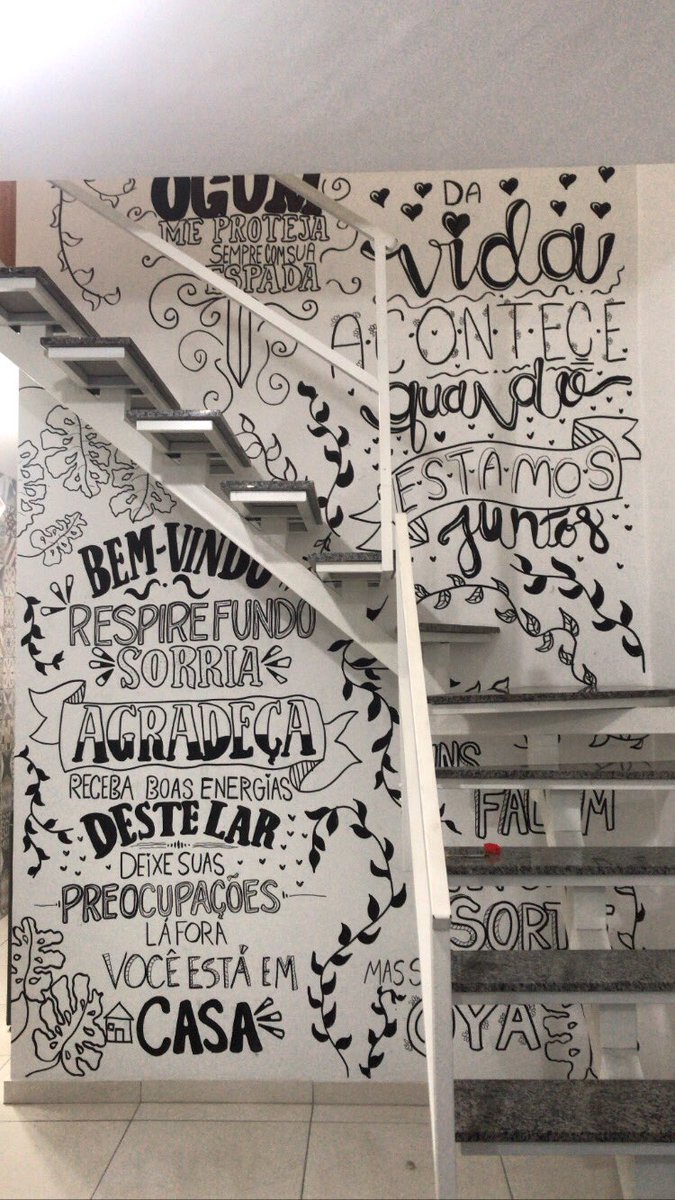 OGUM
ME PROTEJA
SEMPRE COM SUA
ESPADA
DA
vida
ACONTECE
quando
ESTAMOS
juntos
BEM-VINDO
RESPIRE FUNDO
SORRIA
AGRADEÇA
RECEBA BOAS ENERGIAS
DESTE LAR
DEIXE SUAS
PREOCUPAÇÕES
LÁ FORA
VOCÊ ESTÁ EM
CASA
UNS
FALAM
SORTE
MAS S
OYA